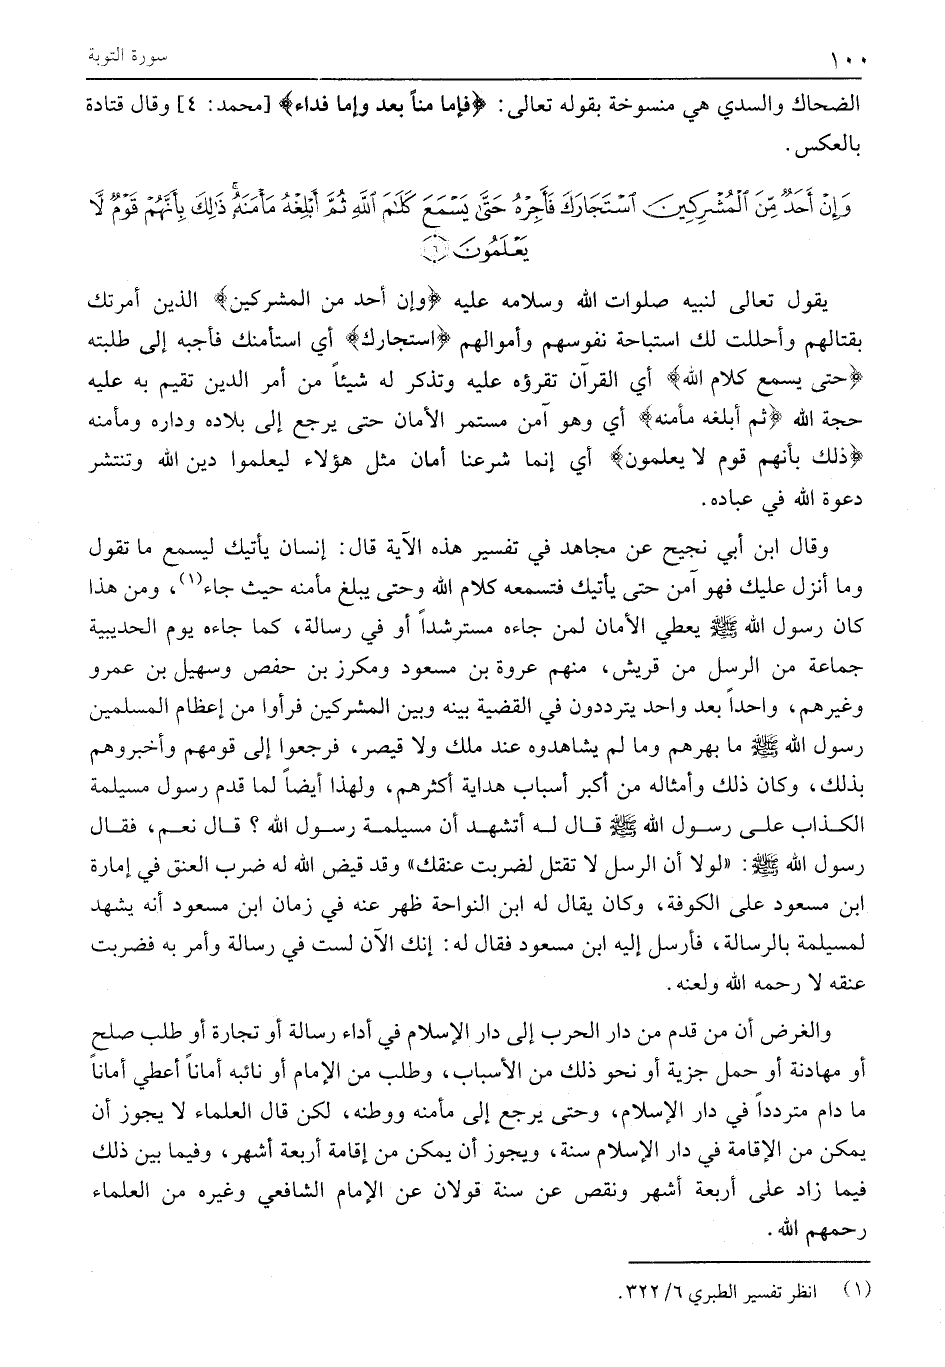 ١٠٠ سورة التوبة
الضحاك والسدي هي منسوخة بقوله تعالى: ﴿فإما مناً بعد وإما فداء﴾ [محمد: ٤] وقال قتادة
بالعكس.
وَإِنْ أَحَدٌ مِّنَ ٱلْمُشْرِكِينَ ٱسْتَجَارَكَ فَأَجِرْهُ حَتَّىٰ يَسْمَعَ كَلَٰمَ ٱللَّهِ ثُمَّ أَبْلِغْهُ مَأْمَنَهُۥ ۚ ذَٰلِكَ بِأَنَّهُمْ قَوْمٌ لَّا
يَعْلَمُونَ ٦
يقول تعالى لنبيه صلوات الله وسلامه عليه ﴿وإن أحد من المشركين﴾ الذين أمرتك
بقتالهم وأحللت لك استباحة نفوسهم وأموالهم ﴿استجارك﴾ أي استأمنك فأجبه إلى طلبته
﴿حتى يسمع كلام الله﴾ أي القرآن تقرؤه عليه وتذكر له شيئاً من أمر الدين تقيم به عليه
حجة الله ﴿ثم أبلغه مأمنه﴾ أي وهو آمن مستمر الأمان حتى يرجع إلى بلاده وداره ومأمنه
﴿ذلك بأنهم قوم لا يعلمون﴾ أي إنما شرعنا أمان مثل هؤلاء ليعلموا دين الله وتنتشر
دعوة الله في عباده.
وقال ابن أبي نجيح عن مجاهد في تفسير هذه الآية قال: إنسان يأتيك ليسمع ما تقول
وما أنزل عليك فهو آمن حتى يأتيك فتسمعه كلام الله وحتى يبلغ مأمنه حيث جاء(١)، ومن هذا
كان رسول الله ﷺ يعطي الأمان لمن جاءه مسترشداً أو في رسالة، كما جاءه يوم الحديبية
جماعة من الرسل من قريش، منهم عروة بن مسعود ومكرز بن حفص وسهيل بن عمرو
وغيرهم، واحداً بعد واحد يترددون في القضية بينه وبين المشركين فرأوا من إعظام المسلمين
رسول الله ﷺ ما بهرهم وما لم يشاهدوه عند ملك ولا قيصر، فرجعوا إلى قومهم وأخبروهم
بذلك، وكان ذلك وأمثاله من أكبر أسباب هداية أكثرهم، ولهذا أيضاً لما قدم رسول مسيلمة
الكذاب على رسول الله ﷺ قال له أتشهد أن مسيلمة رسول الله ؟ قال نعم، فقال
رسول الله ﷺ: «لولا أن الرسل لا تقتل لضربت عنقك» وقد قيض الله له ضرب العنق في إمارة
ابن مسعود على الكوفة، وكان يقال له ابن النواحة ظهر عنه في زمان ابن مسعود أنه يشهد
لمسيلمة بالرسالة، فأرسل إليه ابن مسعود فقال له: إنك الآن لست في رسالة وأمر به فضربت
عنقه لا رحمه الله ولعنه.
والغرض أن من قدم من دار الحرب إلى دار الإسلام في أداء رسالة أو تجارة أو طلب صلح
أو مهادنة أو حمل جزية أو نحو ذلك من الأسباب، وطلب من الإمام أو نائبه أماناً أعطي أماناً
ما دام متردداً في دار الإسلام، وحتى يرجع إلى مأمنه ووطنه، لكن قال العلماء لا يجوز أن
يمكن من الإقامة في دار الإسلام سنة، ويجوز أن يمكن من إقامة أربعة أشهر، وفيما بين ذلك
فيما زاد على أربعة أشهر ونقص عن سنة قولان عن الإمام الشافعي وغيره من العلماء
رحمهم الله.
(١) انظر تفسير الطبري ٦/ ٣٢٢.